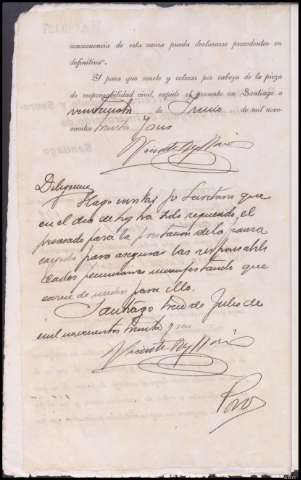 consecuencia de esta causa pueda declararse procedentes en
definitiva".
Y para que conste y colocar por cabeza de la pieza
de responsabilidad civil, expido el presente en Santiago a
veintiseis de Junio de mil nove-
cientos treinta y seis
Diligencia
Hago constar yo Secretario que
en el dia de hoy ha sido requerido el
procesado para la prestacion de la fianza
para asegurar las responsabili-
dades pecuniarias manifestando que
carece de medios para ello.
Santiago tres de Julio de
mil novecientos treinta y seis